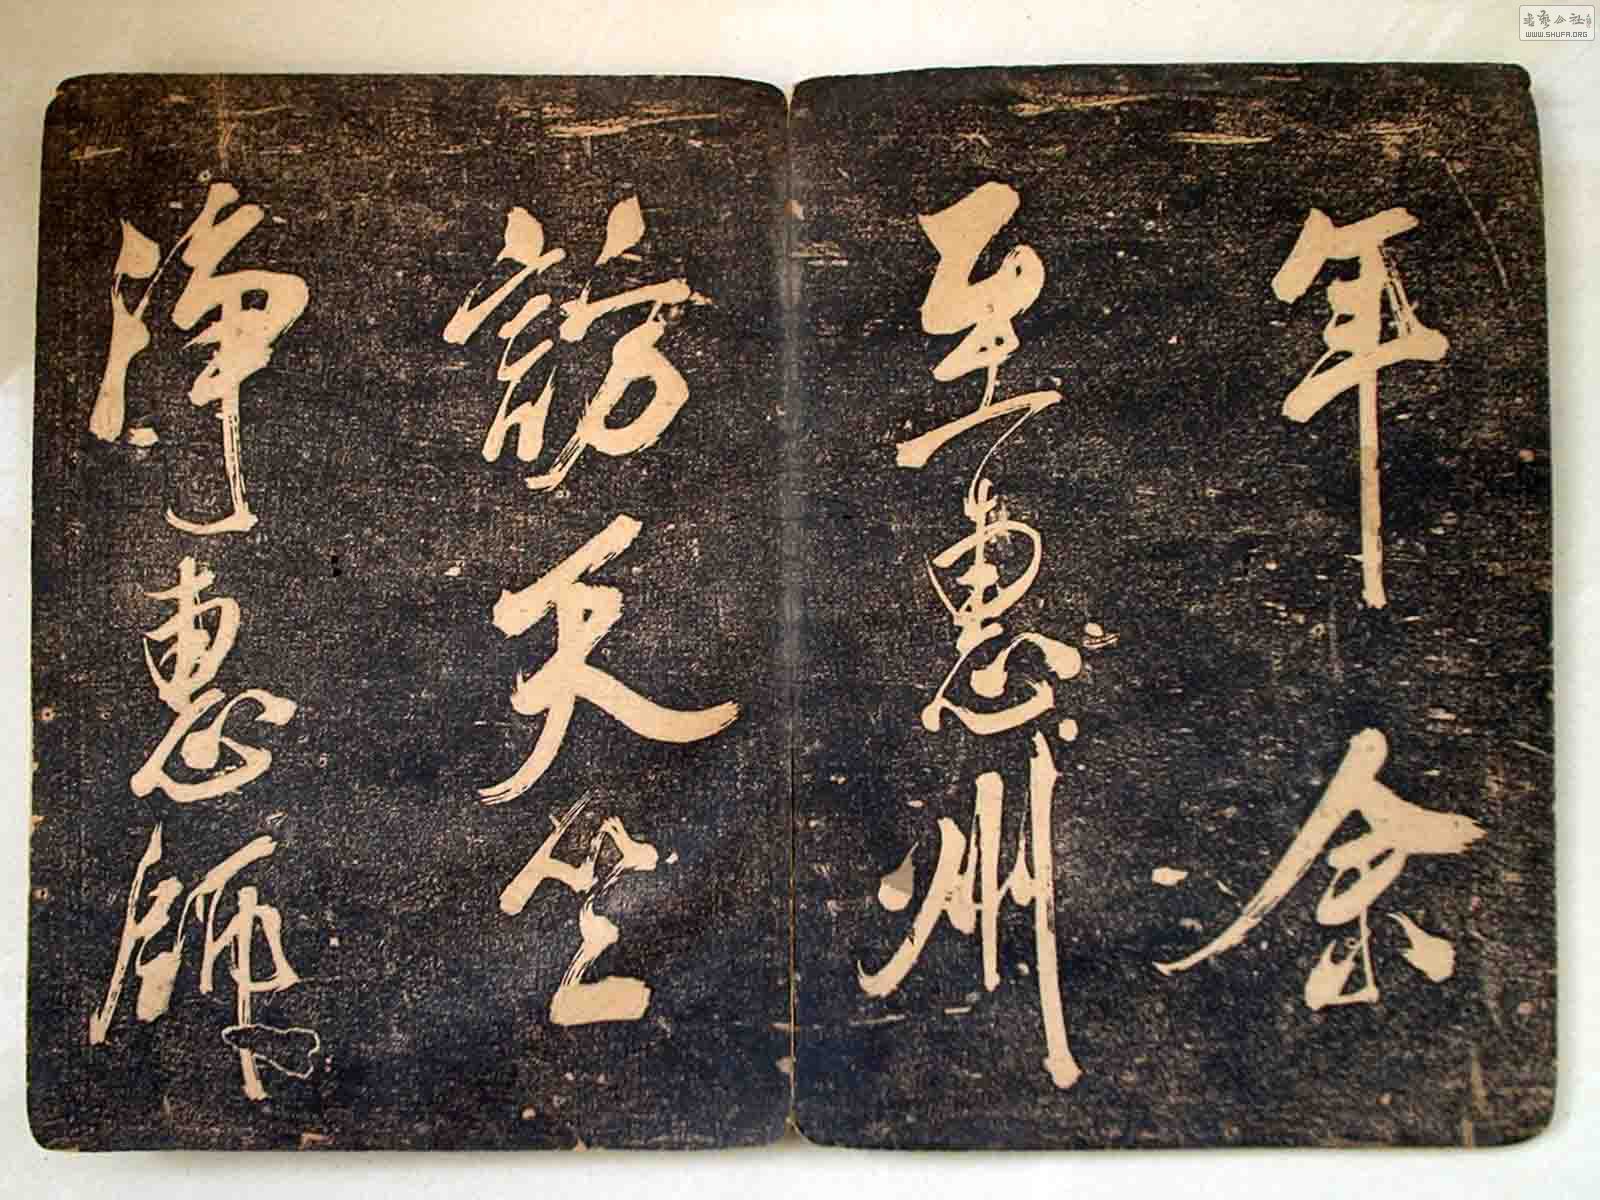 年余
至惠州
訪天竺
淨惠師
書藝公社
WWW.SHUFA.ORG